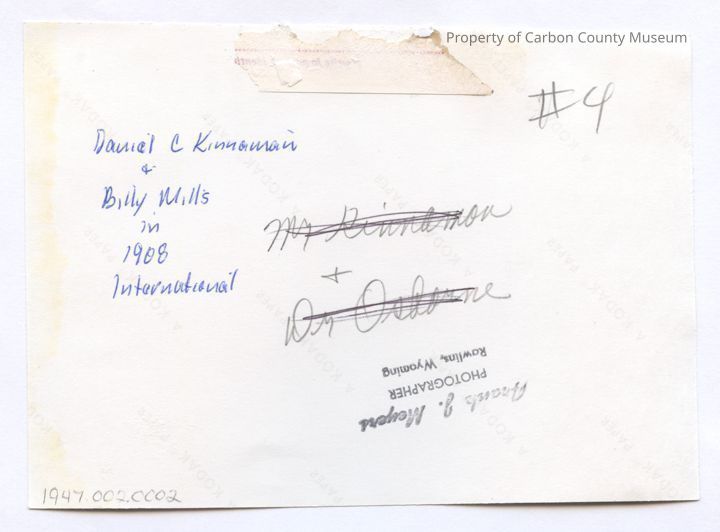 Property of Carbon County Museum
#4
Daniel C Kinnaman
&
Billy Mills
in
1908
International
Mr Kinnamon
+
Dr Osborne
Frank J. Meyers
PHOTOGRAPHER
Rawlins, Wyoming
1947.002.0002
A KODAK PAPER